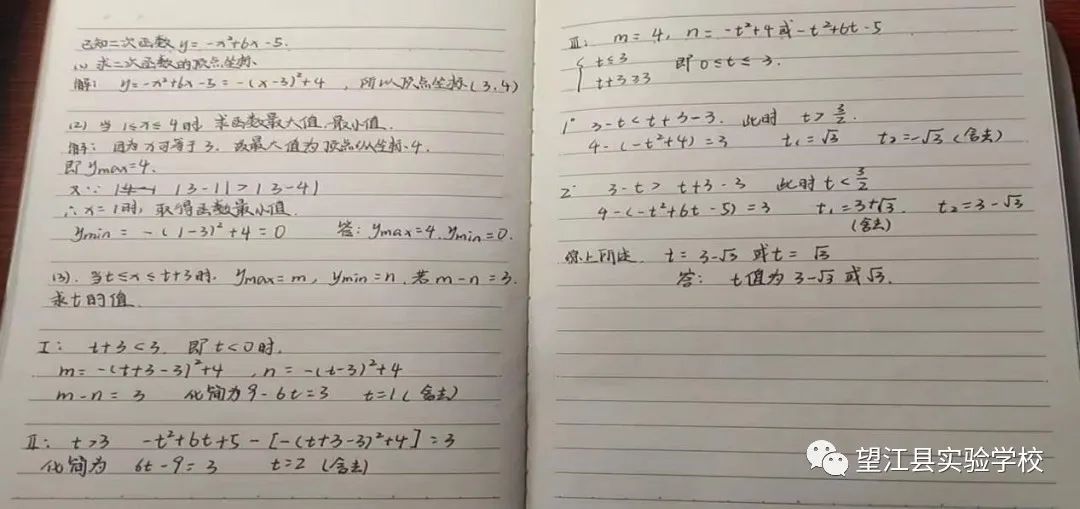 已知二次函数 y = -x²+6x-5.
(1) 求二次函数的顶点坐标.
解: y=-x²+6x-5 = -(x-3)²+4, 所以顶点坐标(3,4)
(2) 当 1≤x≤4时 求函数最大值.最小值.
解: 因为x可等于3. 故最大值为顶点纵坐标.4.
即 ymax=4.
又∵ |3-1|>|3-4|
∴x=1时, 取得函数最小值.
ymin = -(1-3)²+4=0 答: ymax=4.ymin=0.
(3). 当t≤x≤t+3时. ymax=m, ymin=n. 若m-n=3.
求t的值.
I: t+3<3. 即t<0时.
m=-(t+3-3)²+4 , n=-(t-3)²+4
m-n=3 化简为9-6t=3 t=1(舍去)
II: t>3 -t²+6t+5-[-(t+3-3)²+4]=3
化简为 6t-9=3 t=2 (舍去)
III: m=4, n=-t²+4或-t²+6t-5
{ t≤3
t+3≥3 即 0≤t≤3.
1° 3-t<t+3-3. 此时 t>3/2.
4-(-t²+4)=3 t₁=√3 t₂=-√3(舍去)
2° 3-t> t+3-3 此时t<3/2
4-(-t²+6t-5)=3 t₁=3+√3. t₂=3-√3
(舍去)
综上所述. t=3-√3 或t=√3
答: t值为3-√3 或√3.
望江县实验学校